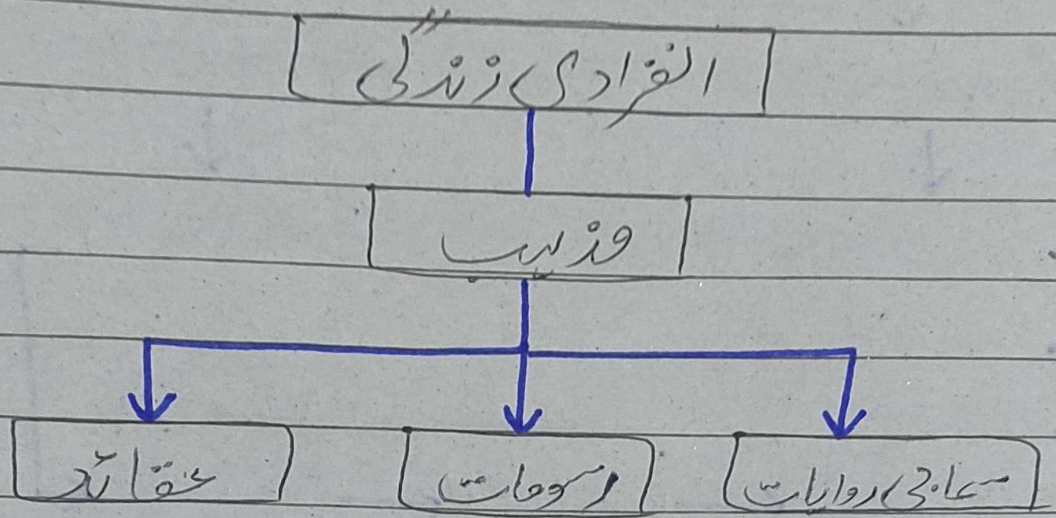 انفرادی زندگی
مذہب
سماجی روایات
رسومات
عقائد